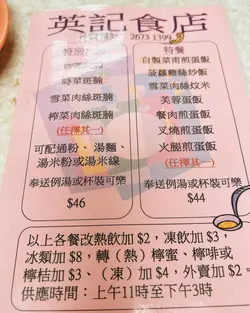 英記食店
2673 1399
特餐
自製菜甫煎蛋飯
時菜斑腩
菠蘿雞絲炒飯
雪菜肉絲斑腩
雪菜肉絲炆米
榨菜肉絲斑腩
芙蓉蛋飯
(任擇其一)
餐肉煎蛋飯
叉燒煎蛋飯
可配通粉、湯麵、
火腿煎蛋飯
湯米粉或湯米線
(任擇其一)
奉送例湯或杯裝可樂
$46
奉送例湯或杯裝可樂
$44
以上各餐改熱飲加 $2，凍飲加 $3，
冰類加 $8，轉（熱）檸蜜、檸啡或
檸桔加 $3、（凍）加 $4，外賣加 $2。
供應時間：上午11時至下午3時